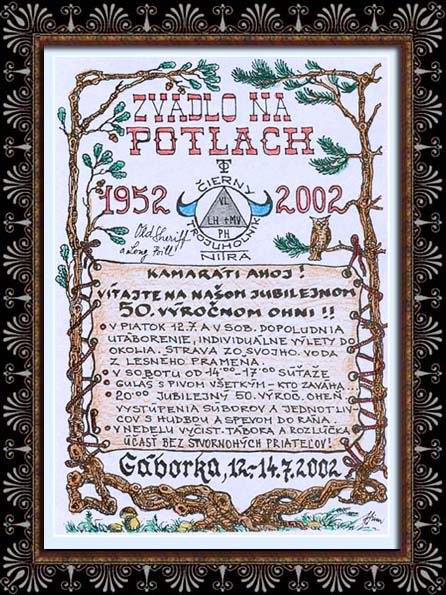 ZVADLO NA
POTLACH
TT
ČIERNY
1952 2002
VL
LH +MV
PH
TROJUHOLNÍK
NITRA
Old Sheriff
a Long Bill
KAMARÁTI AHOJ!
VÍTAJTE NA NAŠOM JUBILEJNOM
50. VÝROČNOM OHNI!!
• V PIATOK 12.7. A V SOB. DOPOLUDNIA
UTÁBORENIE, INDIVIDUÁLNE VÝLETY DO
OKOLIA. STRAVA ZO SVOJHO. VODA
Z LESNÉHO PRAMEŇA.
• V SOBOTU OD 14°°-17°° SÚŤAŽE
GULÁŠ S PIVOM VŠETKÝM - KTO ZAVÁHA...
• 20°° JUBILEJNÝ 50. VÝROČ. OHEŇ
VYSTÚPENIA SÚBOROV A JEDNOTLIV-
COV S HUDBOU A SPEVOM DO RÁNA.
• V NEDEĽU VYČIST. TÁBORA A ROZLÚČKA
ÚČASŤ BEZ ŠTVORNOHÝCH PRIATEĽOV!
Gáborka, 12.-14.7.2002